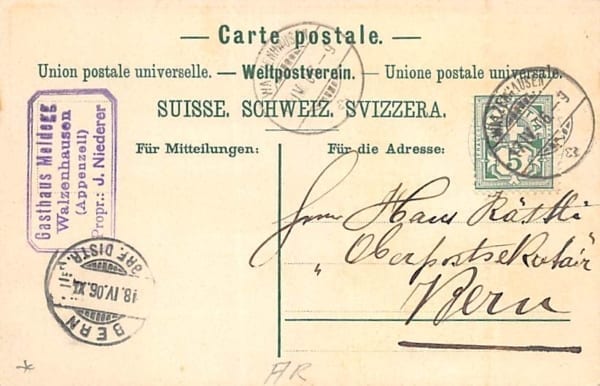 — Carte postale. —
Union postale universelle. — Weltpostverein. — Unione postale universale.
SUISSE. SCHWEIZ. SVIZZERA.
Für Mitteilungen:
Für die Adresse:
Gasthaus Meldegg
Walzenhausen
(Appenzell)
Propr.: J. Niederer
WALZENHAUSEN
WALZENHAUSEN
5
Herrn Hans
Oberpostsekretär
Bern
BERN
18.IV.06.XI
BRF. DISTR.
AR